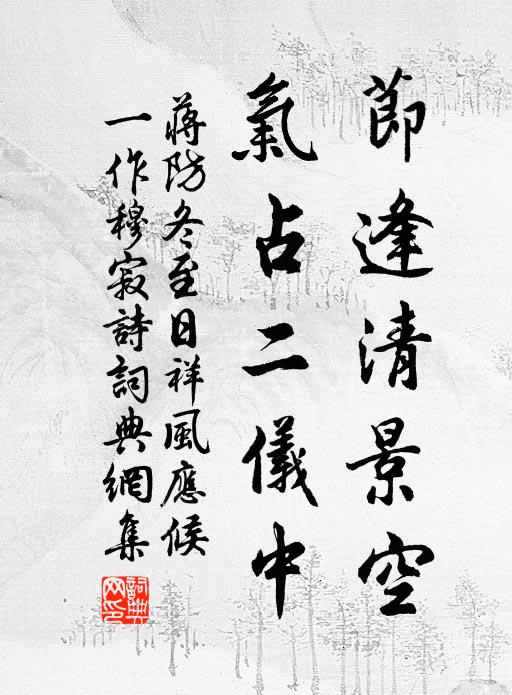 莭逢清景空
氣占二儀中
蔣防冬至日祥風應候
一作穆寂詩詞典網集